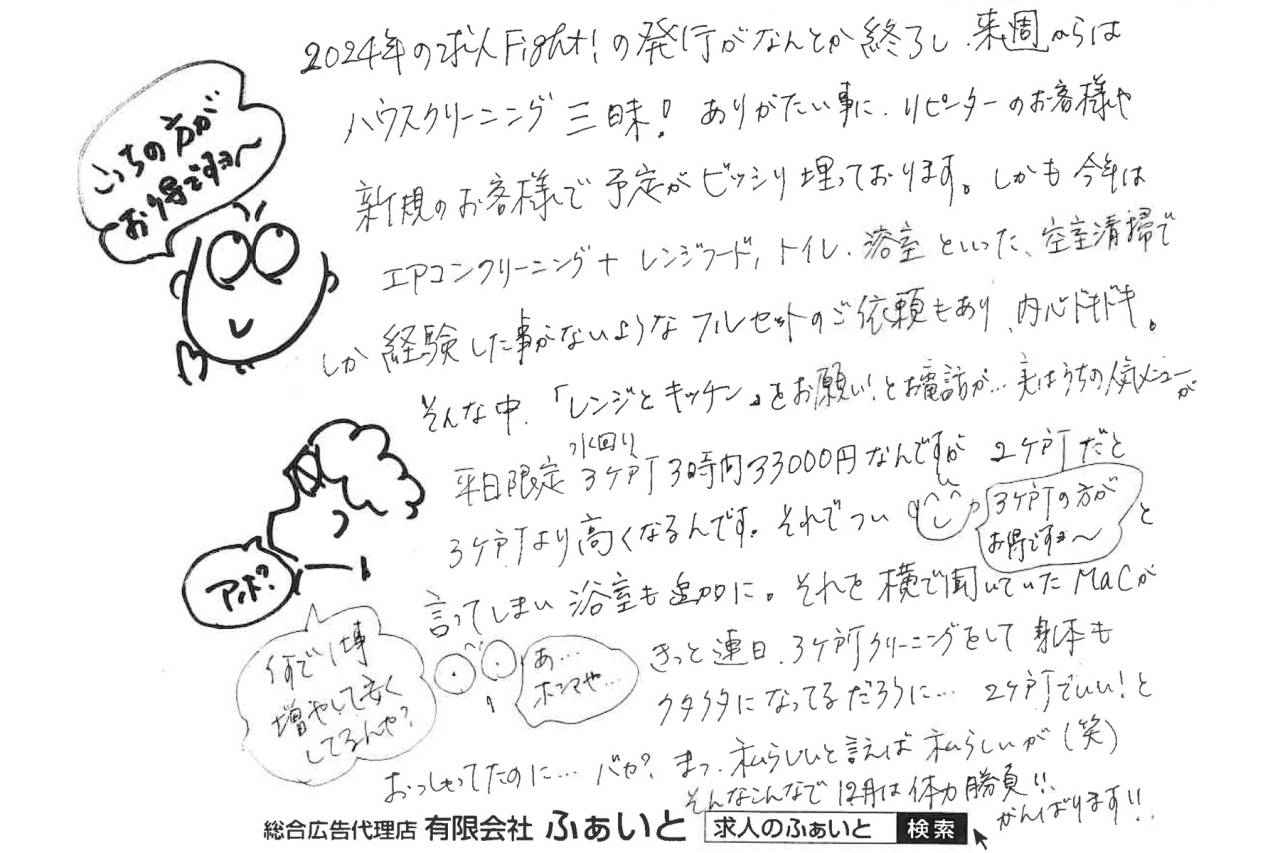 2024年の求人Fight!の発行がなんとか終了し、来週からは
ハウスクリーニング三昧!ありがたい事に、リピーターのお客様や
新規のお客様で予定がビッシリ埋っております。しかも今年は
エアコンクリーニング+レンジフード、トイレ、浴室といった、空室清掃で
しか経験した事がないようなフルセットのご依頼もあり、内心ドキドキ。
そんな中、「レンジとキッチン」をお願い!とお電話が…実はうちの人気メニューが
平日限定水回り3ケ所3時間33000円なんですが2ケ所だと
3ケ所より高くなるんです。それでつい
3ケ所の方が
お得ですョ〜
と
言ってしまい浴室も追加に。それを横で聞いていたMacが
きっと連日、3ケ所クリーニングをして身体も
クタクタになってるだろうに…2ケ所でいい!と
おっしゃってたのに…バカ?まっ、私らしいと言えば私らしいが(笑)
そんなこんなで12月は体力勝負!!
がんばります!!
こっちの方が
お得ですョ〜
アホ?
何で仕事
増やして安く
してるんや?
あ…
ホンマや…
総合広告代理店 有限会社 ふぁいと 求人のふぁいと 検索